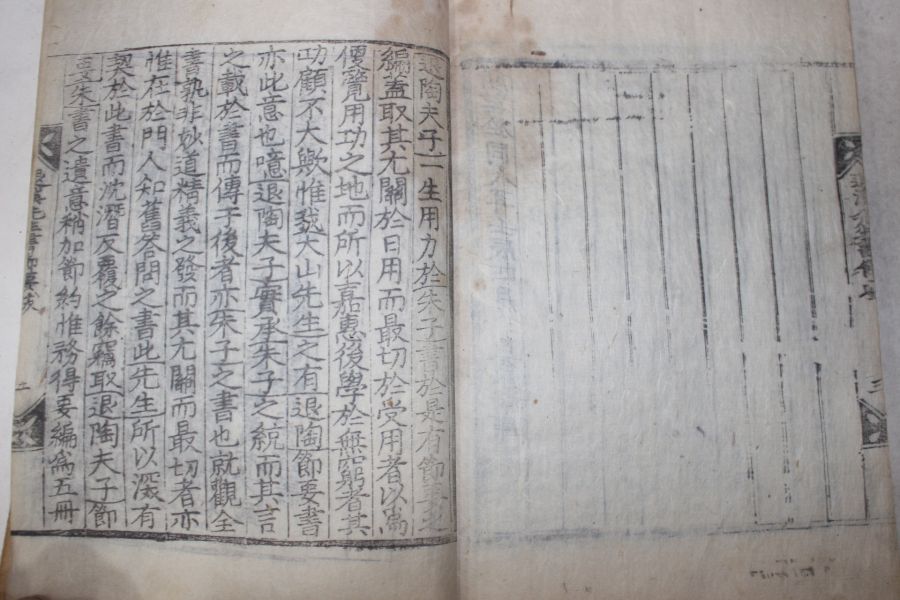 退陶夫子一生用力於朱子書於是有節要之
編蓋取其尤關於日用而最切於受用者以爲
便覽用功之地而所以嘉惠後學於無窮者其
功顧不大歟惟我大山先生之有退陶節要書
亦此意也噫退陶夫子實承朱子之統而其言
之載於書而傳于後者亦朱子之書也就觀全
書孰非妙道精義之發而其尤關而最切者亦
惟在於門人知舊答問之書此先生所以深有
契於此書而沈潛反覆之餘竊取退陶夫子節
要朱書之遺意稍加節約惟務得要編爲五冊
二